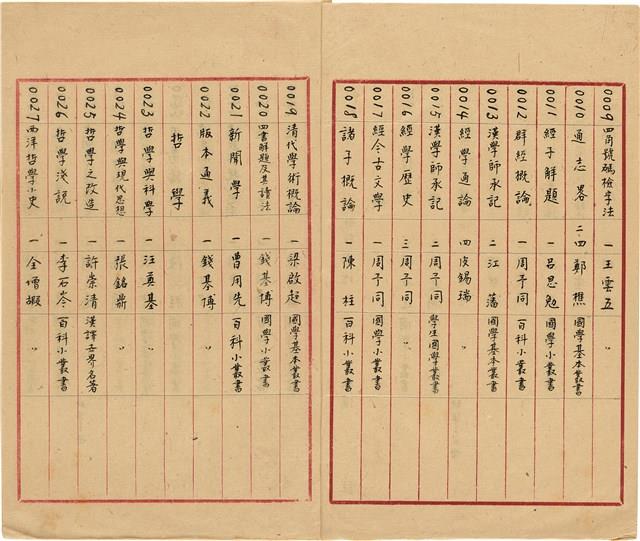 0009 四角號碼檢字法 一 王雲五 〃
0010 通志畧 二四 鄭樵 國學基本叢書
0011 經子解題 一 呂思勉 國學小叢書
0012 群經概論 一 周予同 百科小叢書
0013 漢學師承記 二 江藩 國學基本叢書
0014 經學通論 四 皮錫瑞 〃
0015 漢學師承記 二 周予同 學生國學叢書
0016 經學歷史 三 周予同 〃
0017 經今古文學 一 周予同 國學小叢書
0018 諸子概論 一 陳柱 百科小叢書
0019 清代學術概論 一 梁啟超 國學基本叢書
0020 四書解題及其讀法 一 錢基博 國學小叢書
0021 新聞學 一 曹用先 百科小叢書
0022 版本通義 一 錢基博 〃
哲學
0023 哲學與科學 一 汪奠基
0024 哲學與現代思想 一 張銘鼎 〃
0025 哲學之改造 一 許崇清 漢譯世界名著
0026 哲學淺說 一 李石岑 百科小叢書
0027 西洋哲學小史 一 全增嘏 〃